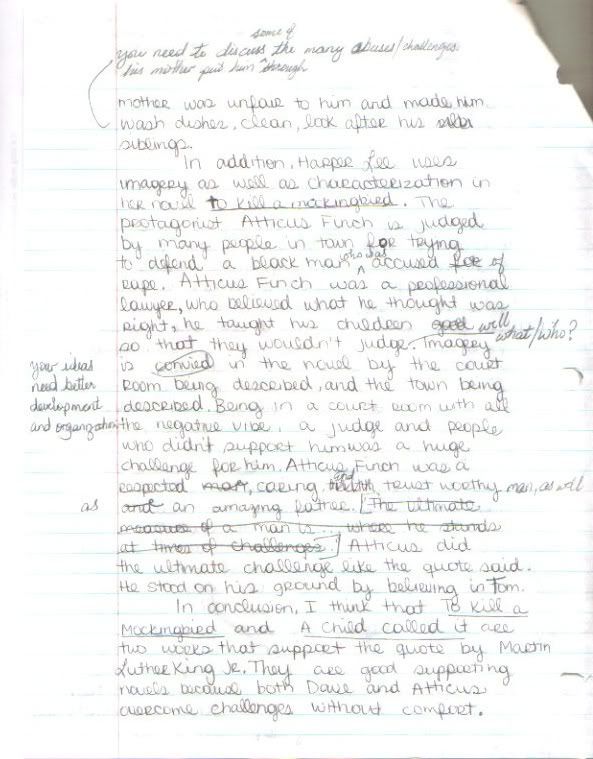 some of
you need to discuss the many abuses/challenges
his mother put him through
mother was unfair to him and made him
wash dishes, clean, look after his
siblings.
In addition, Harper Lee uses
imagery as well as characterization in
her novel to kill a mockingbird. The
protagonist Atticus Finch is judged
by many people in town for trying
to defend a black man who was accused for of
rape. Atticus Finch was a professional
lawyer, who believed what he thought was
right, he taught his children good well
so that they wouldn't judge. Imagery what/who?
is convied in the novel by the court
your ideas
need better
development
and organization
room being described, and the town being
described. Being in a court room with all
the negative vibe, a judge and people
who didn't support him was a huge
challenge for him. Atticus Finch was a
respected man, caring, and trust worthy man, as well
as and an amazing father. [The ultimate
measure of a man is... where he stands
at times of challenges.] Atticus did
the ultimate challenge like the quote said.
He stood on his ground by believing in Tom.
In conclusion, I think that To Kill a
Mockingbird and A Child called it are
two works that support the quote by Martin
Luther King Jr. They are good supporting
novels because both Dave and Atticus
overcome challenges without comfort.